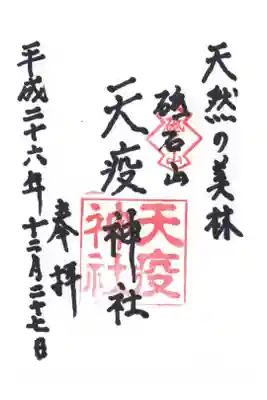 天然の美林
天疫神社
天疫
神社
奉拝
平成二十六年十二月二十七日